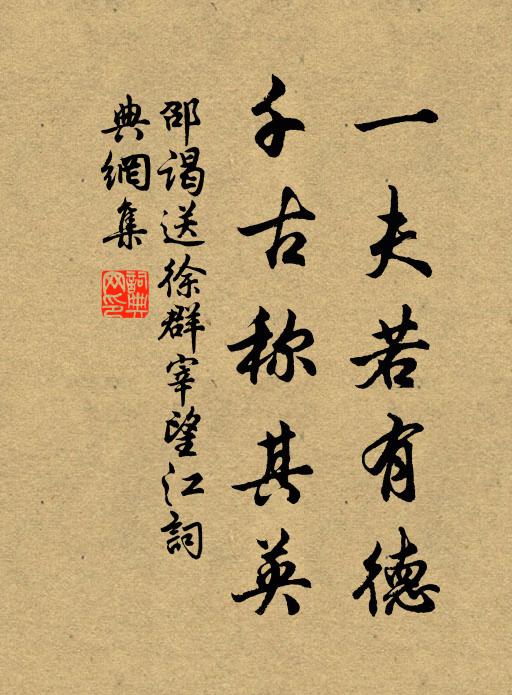 一夫若有德
千古称其英
邵谒送徐群宰望江詞
典網集
詞典网印